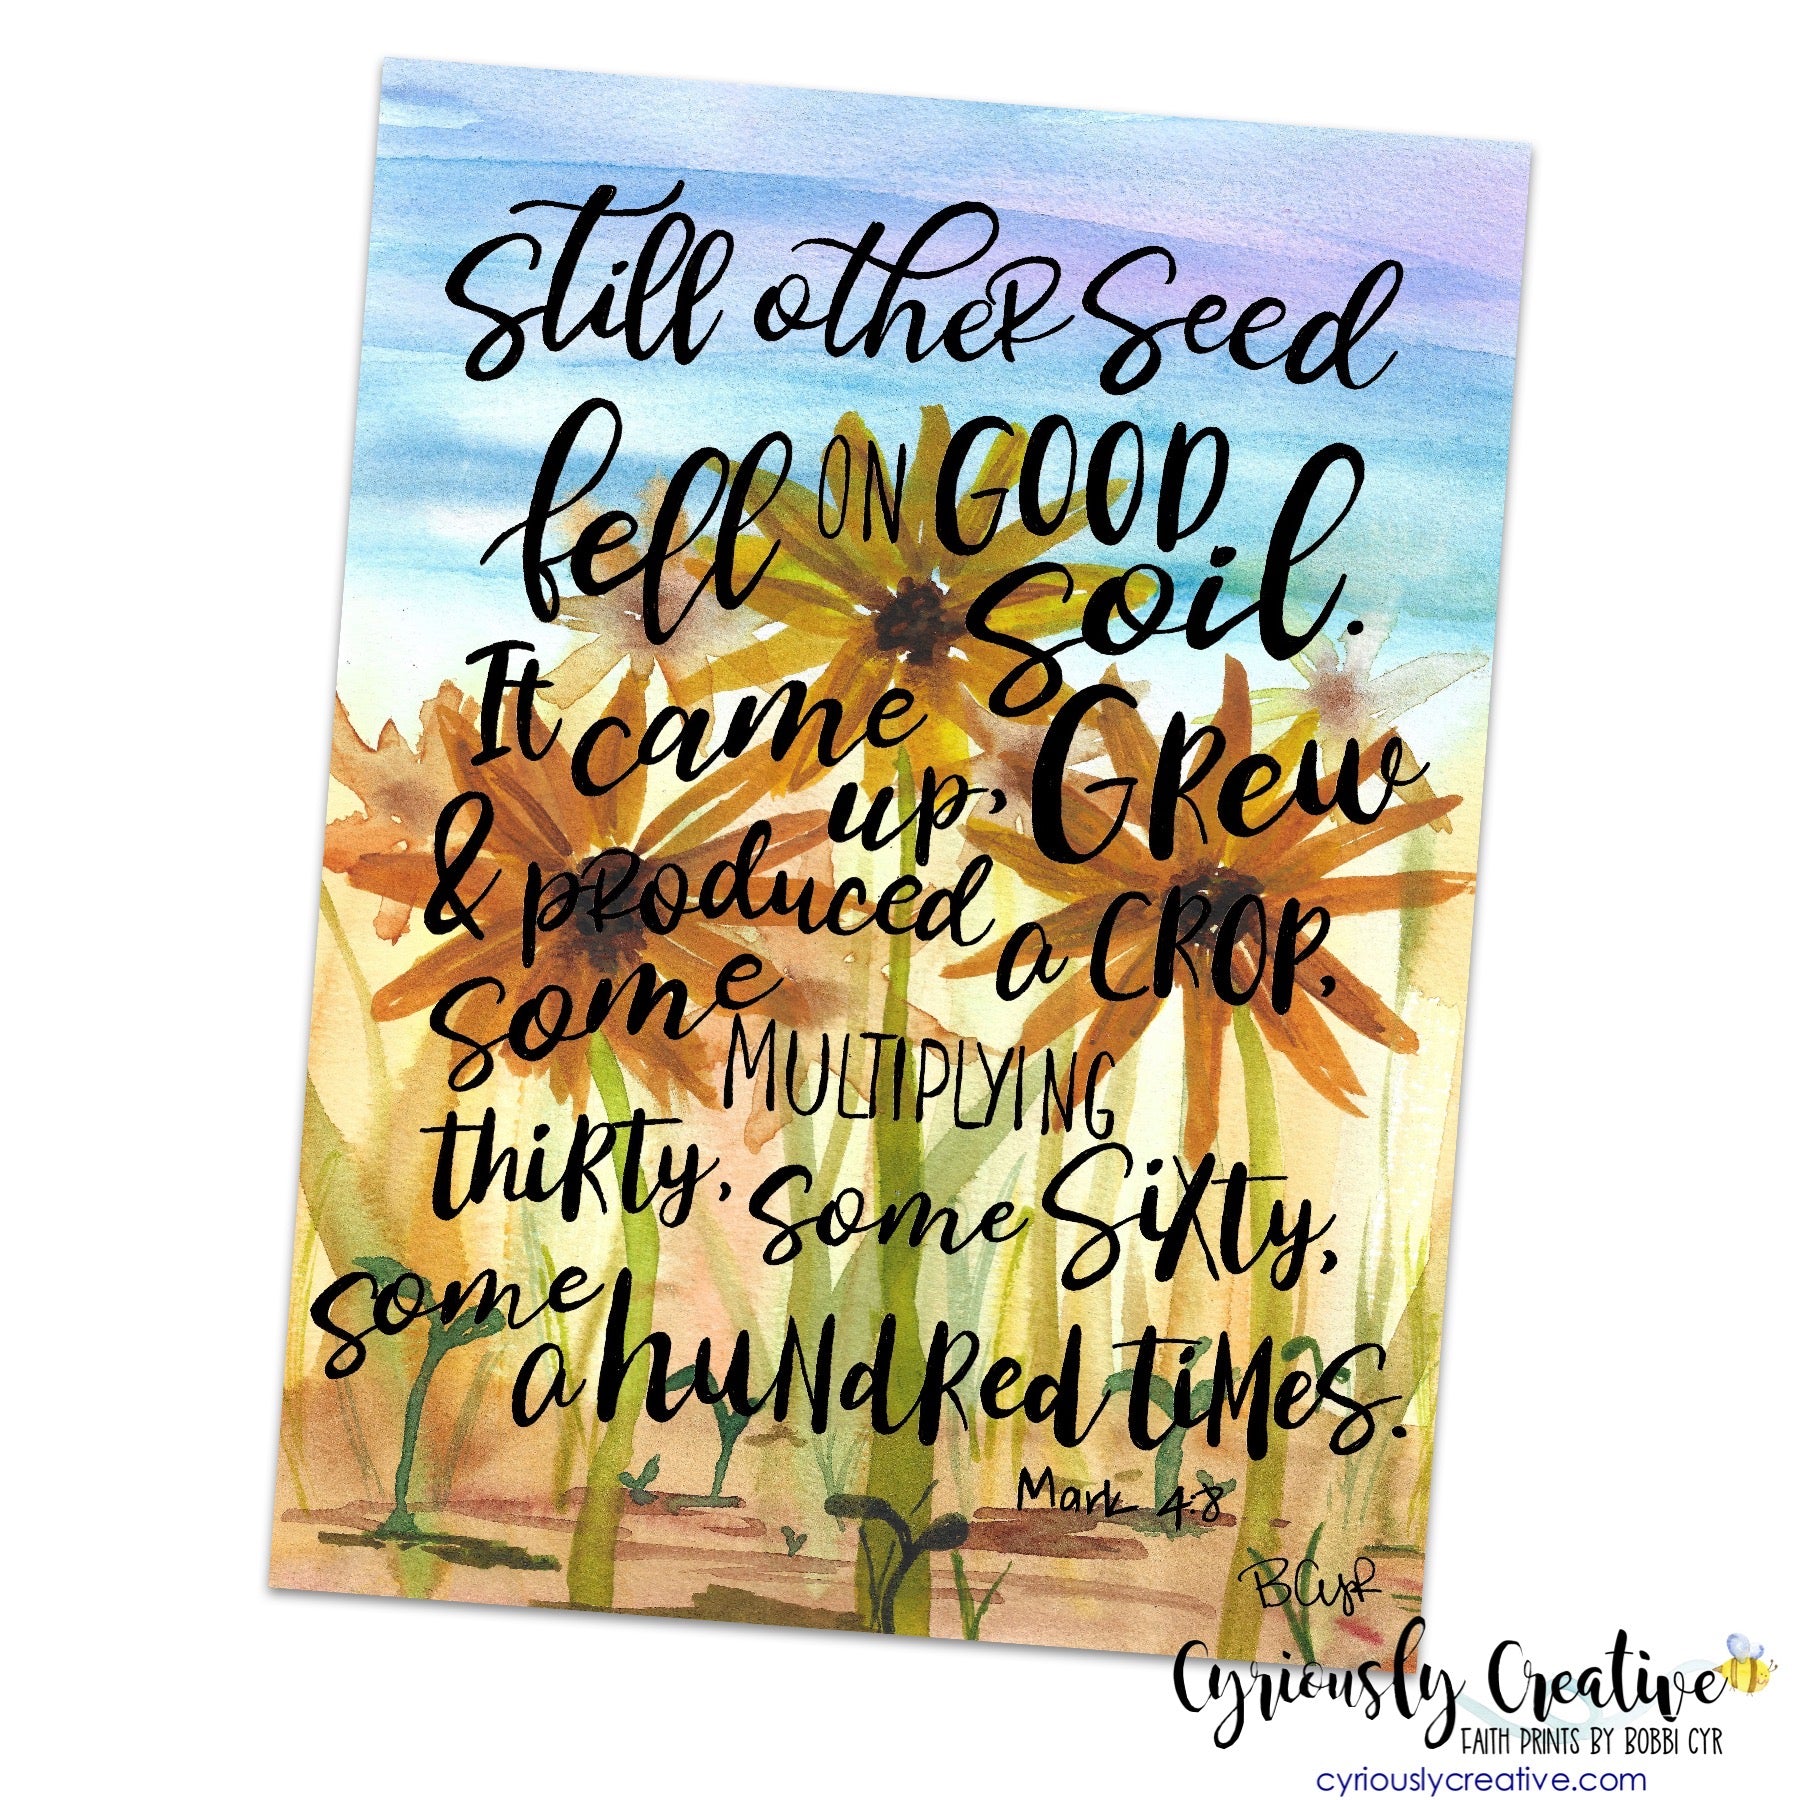 Still other Seed
fell on GOOD
soil.
It came
up, Grew
& produced
a CROP,
some
MULTIPLYING
thirty, some Sixty,
some
a hundred times.
Mark 4:8
BCyR
Cyriously Creative
FAITH PRINTS BY BOBBI CYR
cyriouslycreative.com